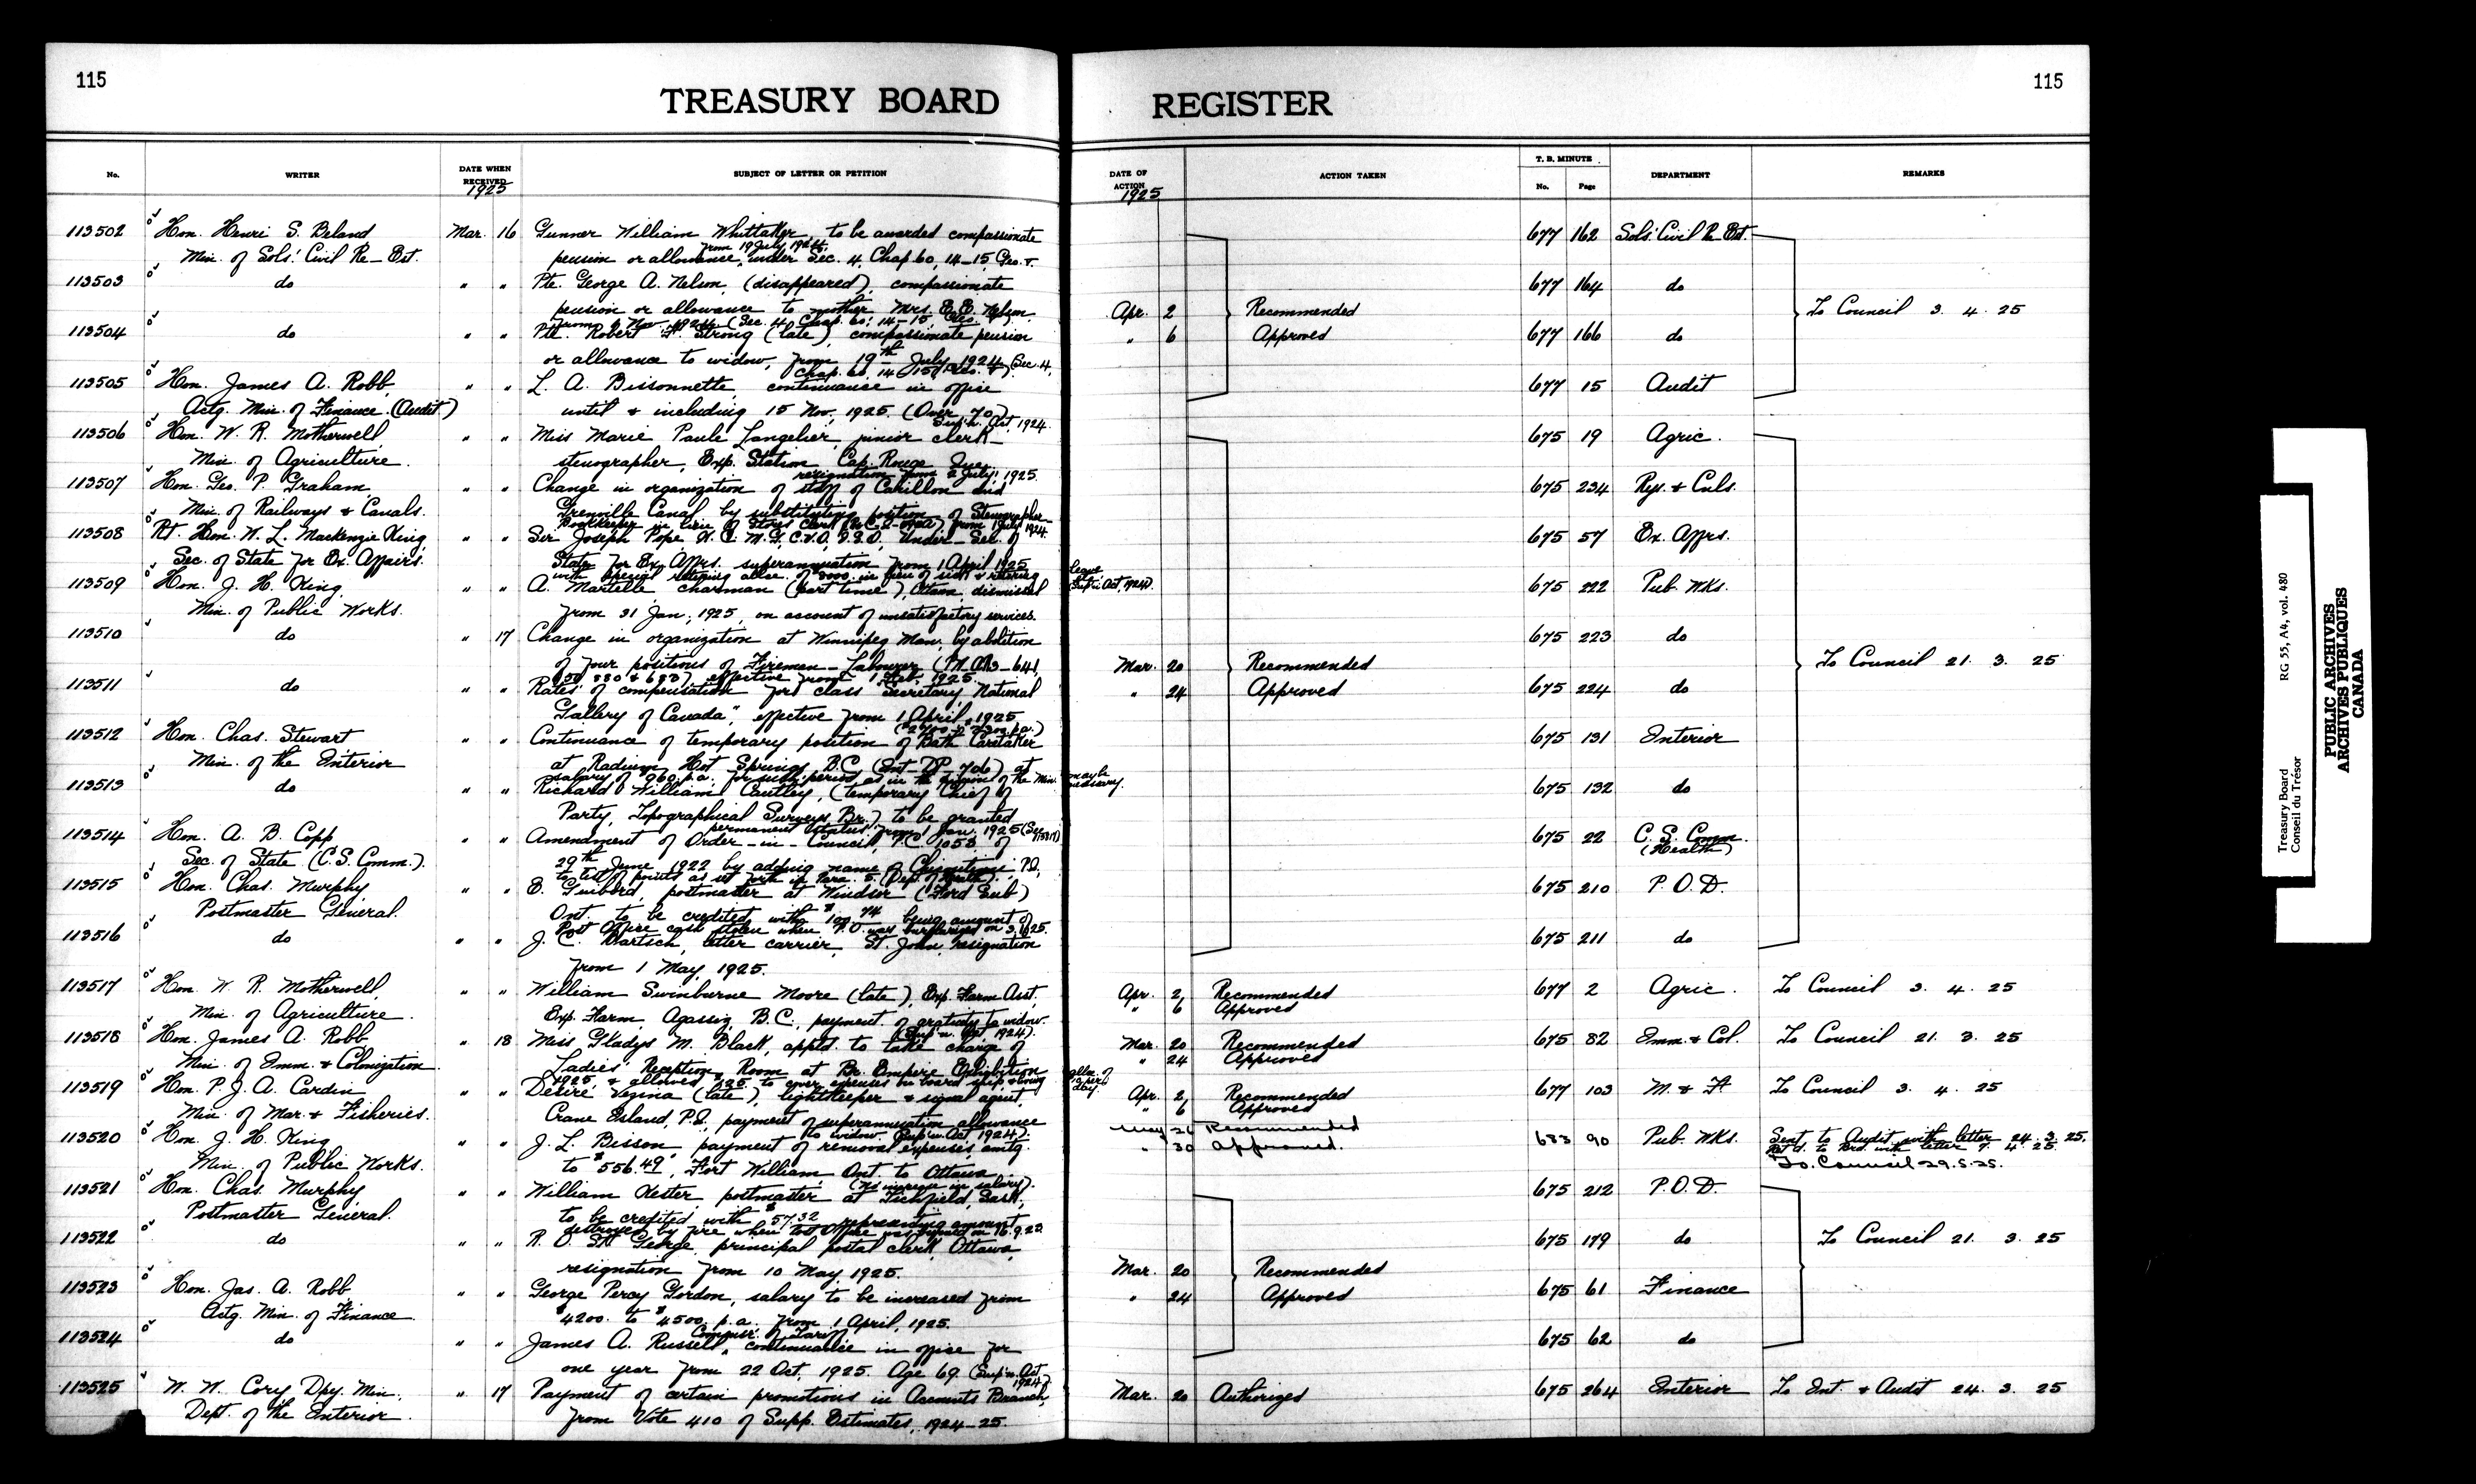 115
TREASURY BOARD
No.
WRITER
DATE WHEN RECEIVED
1925
SUBJECT OF LETTER OR PETITION
113502 Hon. Henri S. Beland Mar. 16 Gunner William Whittaker, to be awarded compassionate
from 19 July 1924,
Min. of Sols.' Civil Re-Est. pension or allowance, under Sec. 4, Chap 60, 14-15, Geo. V.
113503 do " " Pte. George A. Nelson, (disappeared), compassionate
pension or allowance to mother Mrs. E.E. Nelson
from Nov. 1924 (Sec. 4, Chap. 60, 14-15, Geo.
113504 do " " Pte. Robert F. Strong (late), compassionate pension
or allowance to widow, from 19th July 1924 (Sec. 4,
Chap. 60, 14-15, Geo. V).
113505 Hon. James A. Robb, " " L. A. Bissonnette, continuance in office
Actg. Min. of Finance. (Audit) until & including 15 Nov. 1925. (Over 70)
Sup'n. Act, 1924.
113506 Hon. W. R. Motherwell, " " Miss Marie Paule Langelier, junior clerk-
Min. of Agriculture. stenographer, Exp. Station, Cap Rouge, Que.
resignation from 2 July, 1925.
113507 Hon. Geo. P. Graham, " " Change in organization of staff of Carillon and
Min. of Railways & Canals. Grenville Canal by substituting position of Stenographer-
Bookkeeper in lieu of Stores Clerk from 1 July 1924.
113508 Rt. Hon. W. L. Mackenzie King, " " Sir Joseph Pope K.C.M.G., C.V.O., I.S.O., Under-Sec. of
Sec. of State for Ex. Affairs. State for Ex. Affrs. superannuation from 1 April 1925
with special retiring allce. of 8000. in lieu of sick & retiring leave
(Sup'n Act, 1924).
113509 Hon. J. H. King, " " A. Martelle, charman (part time), Ottawa, dismissal
Min. of Public Works. from 31 Jan., 1925, on account of unsatisfactory services.
113510 do " 17 Change in organization at Winnipeg Man. by abolition
of four positions of Fireman-Labourer
effective from 1 Feb. 1925.
113511 do " " Rates of compensation for class "Secretary, National
Gallery of Canada", effective from 1 April, 1925
113512 Hon. Chas. Stewart " " Continuance of temporary position of Bath Caretaker
Min. of the Interior at Radium Hot Springs, B.C. (Int-DP-706) at
salary of 960. p.a. for such period as in the opinion of the Min. may be
necessary.
113513 do " " Richard William Cautley, (temporary Chief of
Party, Topographical Surveys Br.) to be granted
permanent status from 1 Jan. 1925
113514 Hon. A. B. Copp " " Amendment of Order-in-Council, P.C. 1053 of
Sec. of State (C.S. Comm.). 29th June 1922 by adding name of Chicoutimi, P.Q.,
to list of points as set forth in Para. 5. (Dep. of Health).
113515 Hon. Chas. Murphy, " " E. Guibord, postmaster at Windsor (Ford Sub)
Postmaster General. Ont. to be credited with $100.74 being amount of
Post Office cash stolen when P.O. was burglarized on
113516 do " " J. C. Bartsch, letter carrier, St. John, resignation
from 1 May, 1925.
113517 Hon. W. R. Motherwell, " " William Swinburne Moore (late), Exp. Farm Asst.,
Min. of Agriculture. Exp. Farm, Agassiz, B.C., payment of gratuity to widow.
(Sup'n. Act 1924).
113518 Hon. James A. Robb, " 18 Miss Gladys M. Black, apptd. to take charge of
Min. of Imm. & Colonization. Ladies' Reception Room at Br. Empire Exhibition
1925, & allowed $25. to cover expenses on board ship, & living allce. of
per day.
113519 Hon. P. J. A. Cardin " " Desire Vezina (late), lightkeeper & signal agent,
Min. of Mar. & Fisheries. Crane Island, P.Q., payment of superannuation allowance
to widow. (Sup'n. Act 1924).
113520 Hon. J. H. King " " J. L. Bisson, payment of removal expenses, amtg.
Min. of Public Works. to $556.49, Fort William, Ont. to Ottawa
(No increase in salary).
113521 Hon. Chas. Murphy, " " William Kester, postmaster at Fichfield, Sask.,
Postmaster General. to be credited with $57.32 representing amount
destroyed by fire when Post Office was burned on 16.9.23.
113522 do " " R. O. St. George, principal postal clerk, Ottawa,
resignation from 10 May, 1925.
113523 Hon. Jas. A. Robb, " " George Percy Gordon, salary to be increased from
Actg. Min. of Finance $4200. to $4500. p.a. from 1 April, 1925.
113524 do " " James A. Russell, Commr. of Tariff, continuance in office for
one year from 22 Oct. 1925. Age 69. (Sup'n. Act, 1924).
113525 W. W. Cory, Dpy. Min., " 17 Payment of certain promotions in Accounts Branch,
Dept. of the Interior. from Vote 410 of Supp. Estimates, 1924-25.
REGISTER
115
DATE OF ACTION
1925
ACTION TAKEN
T. B. MINUTE
No.
Page
DEPARTMENT
REMARKS
677 162 Sols.' Civil Re-Est.
677 164 do
Apr. 2 Recommended To Council 3. 4. 25
" 6 Approved 677 166 do
677 15 Audit
675 19 Agric.
675 234 Rys. & Cnls.
675 57 Ex. Affrs.
675 222 Pub. Wks.
675 223 do
Mar. 20 Recommended To Council 21. 3. 25
" 24 Approved 675 224 do
675 131 Interior
675 132 do
675 22 C. S. Comm.
(Health)
675 210 P. O. D.
675 211 do
Apr. 2, Recommended 677 2 Agric. To Council 3. 4. 25
" 6 Approved
Mar. 20 Recommended 675 82 Imm. & Col. To Council 21. 3. 25
" 24 Approved
Apr. 2, Recommended 677 103 M. & F. To Council 3. 4. 25
" 6 Approved
May Recommended
" 30 Approved. 683 90 Pub. Wks. Sent to Audit with letter 24. 3. 25.
Ret'd. to Brd. with letter 7. 4. 25.
To. Council 29.5.25.
675 212 P.O.D.
675 179 do To Council 21. 3. 25
Mar. 20 Recommended
" 24 Approved 675 61 Finance
675 62 do
Mar. 20 Authorized 675 264 Interior To Int. & Audit 24. 3. 25
Treasury Board
Conseil du Trésor
RG 55, A4, vol. 480
PUBLIC ARCHIVES
ARCHIVES PUBLIQUES
CANADA